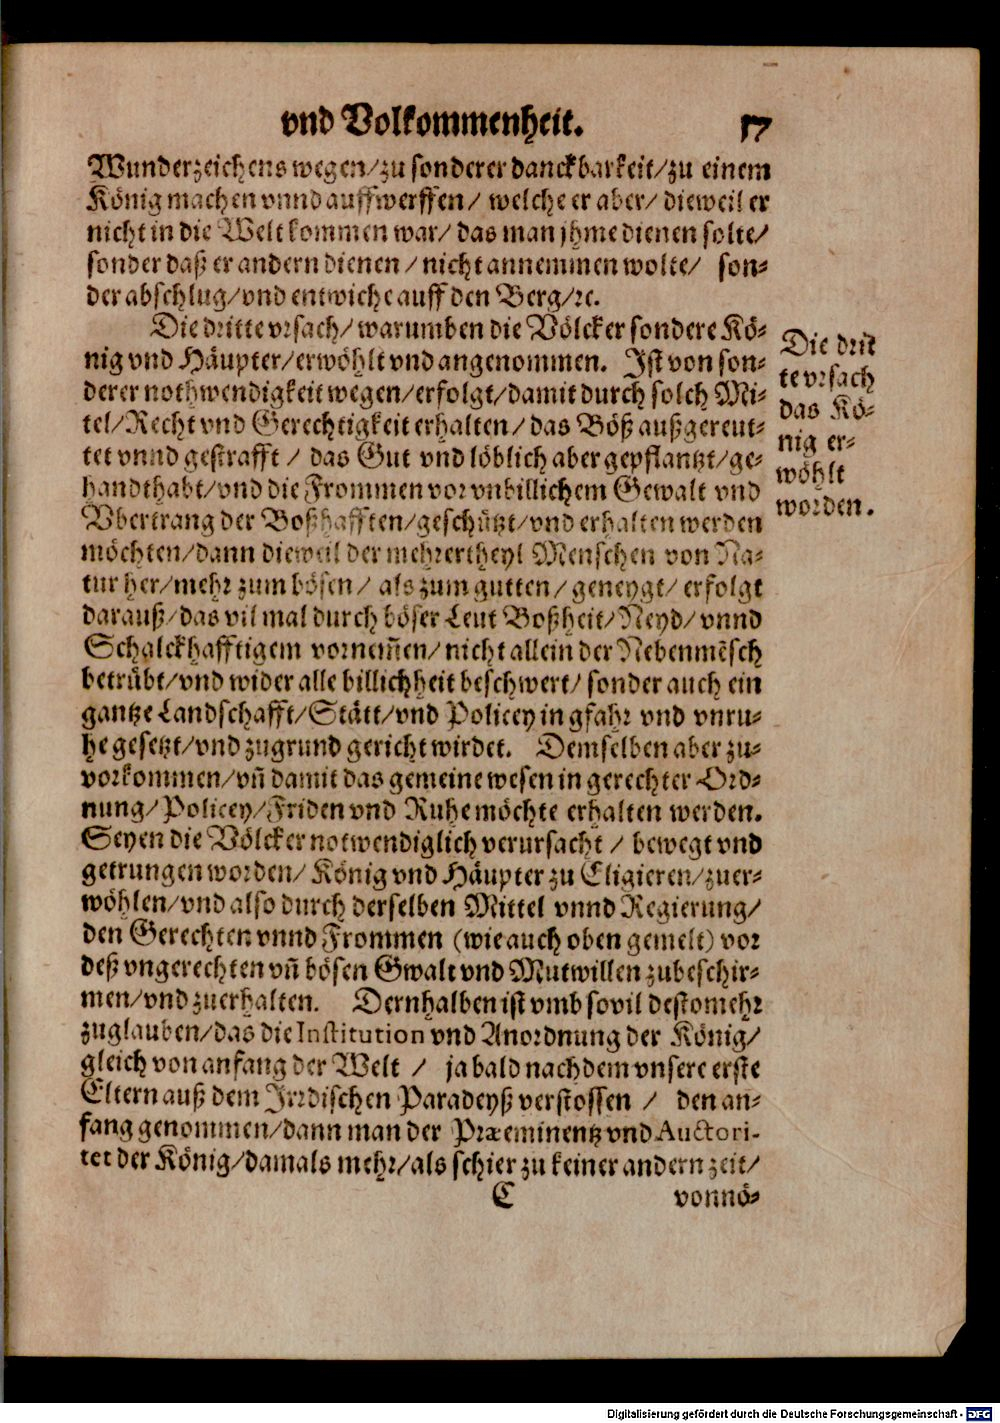 vnd Volkommenheit. 17
Wunderzeichens wegen/zu sonderer danckbarkeit/zu einem
König machen vnnd auffwerffen/ welche er aber/ dieweil er
nicht in die Welt kommen war/ das man jhme dienen solte/
sonder daß er andern dienen / nicht annemmen wolte/ son-
der abschlug/vnd entwiche auff den Berg/rc.
Die dritte vrsach/ warumben die Völcker sondere Kö-
nig vnd Häupter/erwöhlt vnd angenommen. Ist von son-
derer nothwendigkeit wegen/erfolgt/damit durch solch Mi-
tel/Recht vnd Gerechtigkeit erhalten/ das Böß außgereut-
tet vnnd gestrafft / das Gut vnd löblich aber gepflantzt/ge-
handthabt/vnd die Frommen vor vnbillichem Gewalt vnd
Vbertrang der Boßhafften/geschützt/vnd erhalten werden
möchten/dann dieweil der mehrertheyl Menschen von Na-
tur her/mehr zum bösen/ als zum gutten/geneygt/ erfolgt
darauß/das vil mal durch böser Leut Boßheit/Neyd/ vnnd
Schalckhafftigem vornem̃en/nicht allein der Nebenmẽsch
betrübt/vnd wider alle billichheit beschwert/ sonder auch ein
gantze Landschafft/Stätt/vnd Policey in gfahr vnd vnru-
he gesetzt/vnd zugrund gericht wirdet. Demselben aber zu-
vorkommen/vñ damit das gemeine wesen in gerechter Ord-
nung/Policey/Friden vnd Ruhe möchte erhalten werden.
Seyen die Völcker notwendiglich verursacht / bewegt vnd
getrungen worden/ König vnd Häupter zu Eligieren/zuer-
wöhlen/vnd also durch derselben Mittel vnnd Regierung/
den Gerechten vnnd Frommen (wie auch oben gemelt) vor
deß vngerechten vñ bösen Gwalt vnd Mutwillen zubeschir-
men/vnd zuerhalten. Dernhalben ist vmb sovil destomehr
zuglauben/das die Institution vnd Anordnung der König/
gleich von anfang der Welt / ja bald nachdem vnsere erste
Eltern auß dem Irrdischen Paradeyß verstossen / den an-
fang genommen/dann man der Præeminentz vnd Auctori-
tet der König/damals mehr/als schier zu keiner andern zeit/
C vonnö-
Die drit
te vrsach
das Kö-
nig er-
wöhlt
worden.
Digitalisierung gefördert durch die Deutsche Forschungsgemeinschaft - DFG